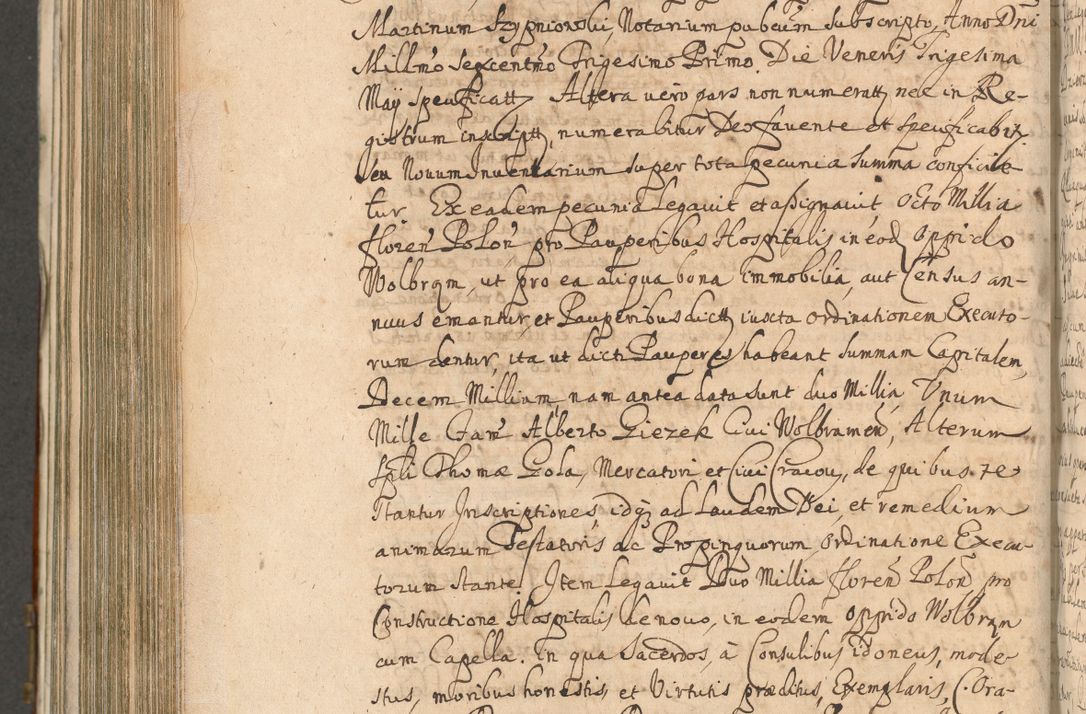 Martinum Szypniowski, Notarium pubcum subscripto, Anno Dni
Millmo Sexcentmo Trigesimo Primo. Die Veneris Trigesima
Maÿ specificatt, Altera vero pars non numeratt, nec in Re-
gistrum inscriptt, numerabitur Deo favente et specificabit
seu Novum Inventarium super tota pecuniæ summa conficie-
tur. Ex eadem pecunia Legavit et assignavit octo Millia
floren Polon pro Pauperibus Hospitalis in eod oppido
Wolbrom, ut pro ea aliqua bona immobilia, aut Census an-
nuus emantur, et Pauperibus dictt, iuxta ordinationem Executo-
rum dentur, ita ut dicti Pauperes habeant summam Capitalem
Decem Millium, nam antea data sunt duo Millia, Unum
Mille Alberto Giezek Civi Wolbramen, Alterum
Thomæ Gola, Mercatori et Civi Cracov, de quibus te-
stantur Inscriptiones, idq ad Laudem Dei, et remedium
animarum Testatoris ac Propinquorum ordinatione Execu-
torum stante. Item Legavit Duo Millia floren Polon pro
Constructione Hospitalis de novo, in eodem oppido Wolbrom
cum Capella. In qua Sacerdos, à Consulibus idoneus, mode-
stus, moribus honestis, et Virtutis præditus, Exemplaris, (. Ora-